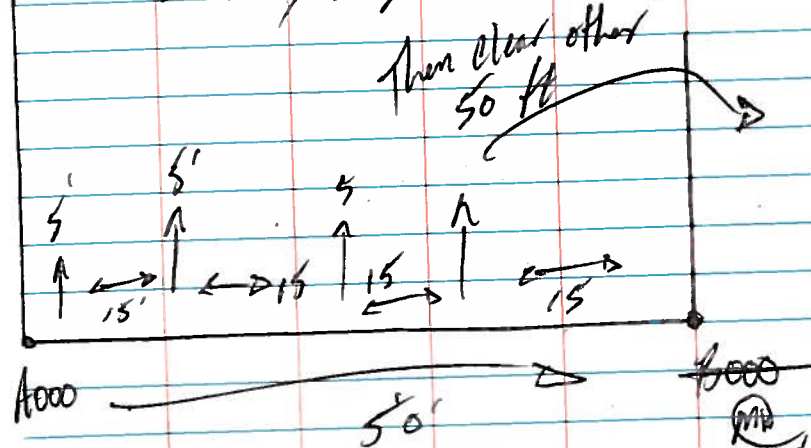 Then clear other
50 ft
5'
5'
5
15'
15
15
15
A000
50'
B000
MB